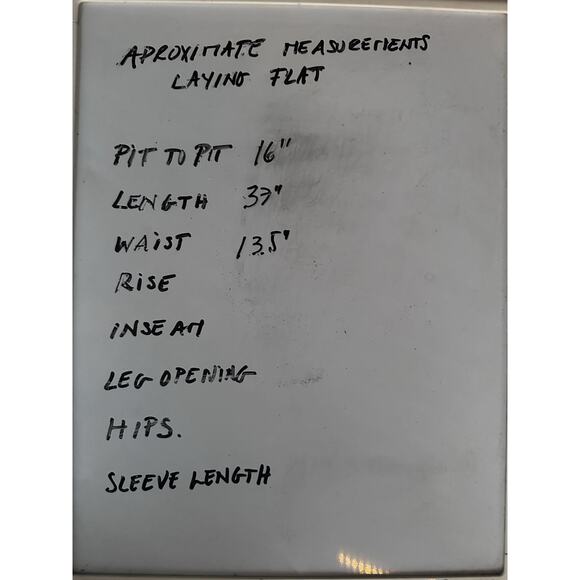 APROXIMATE MEASUREMENTS
LAYING FLAT
PIT TO PIT 16"
LENGTH 37"
WAIST 13.5"
RISE
INSEAM
LEG OPENING
HIPS.
SLEEVE LENGTH